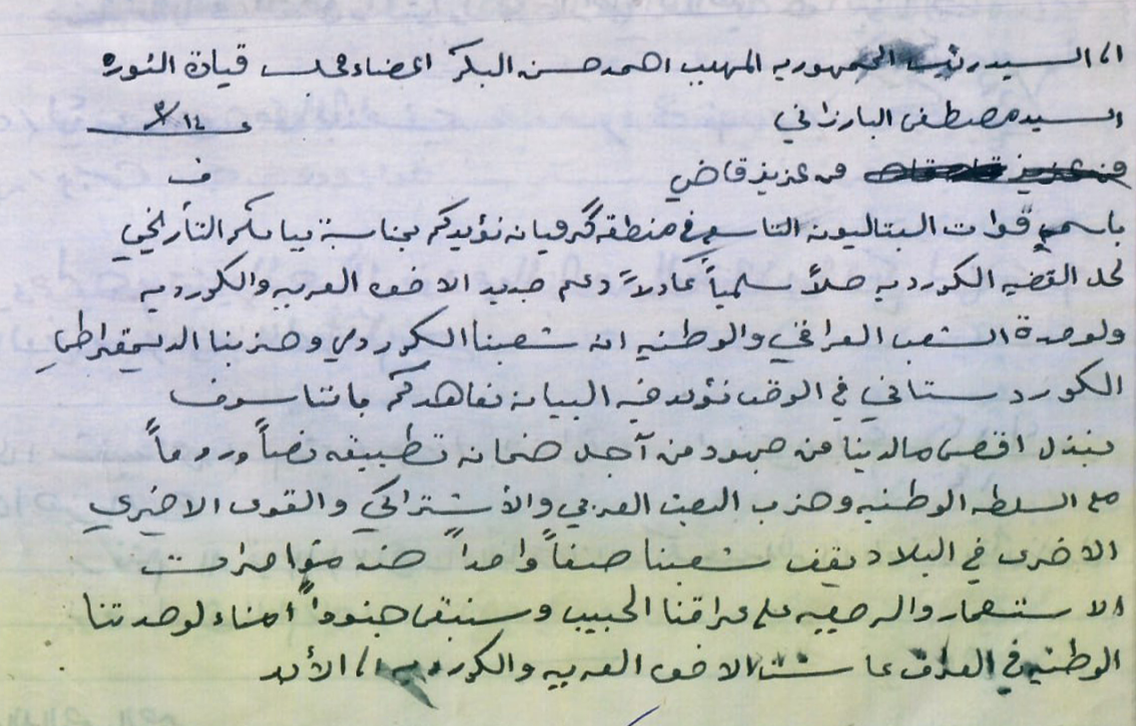 الى السيد رئيس الجمهوريه المهيب احمد حسن البكر اعضاء مجلس قيادة الثوره
السيد مصطفى البارزاني ٣/١٤
من عزيز قاضي ف
باسم قوات البتاليون التاسع في منطقة گرميان نؤيدكم بمناسبة بيانكم التأريخي
لحل القضيه الكورديه حلاً سلمياً عادلاً دعم جديد الاخوه العربيه والكورديه
ولوحدة الشعب العراقي والوطنيه ان شعبنا الكوردي وحزبنا الديمقراطي
الكوردستاني في الوقت نؤيد فيه البيان نعاهدكم باننا سوف
نبذل اقصى مالدينا من جهود من آجل ضمان تطبيقه نصاً وروحاً
مع السلطه الوطنيه وحزب البعث العربي والأشتراكي والقوى الاخيرى
الاخرى في البلاد يقف شعبنا صفاً واحداً ضد مؤامرات
الاستعمار والرجعيه على عراقنا الحبيب وسنبقى جنوداً امناء لوحدتنا
الوطنيه في العراق عاشت الاخوه العربيه والكورديه الى الأبد